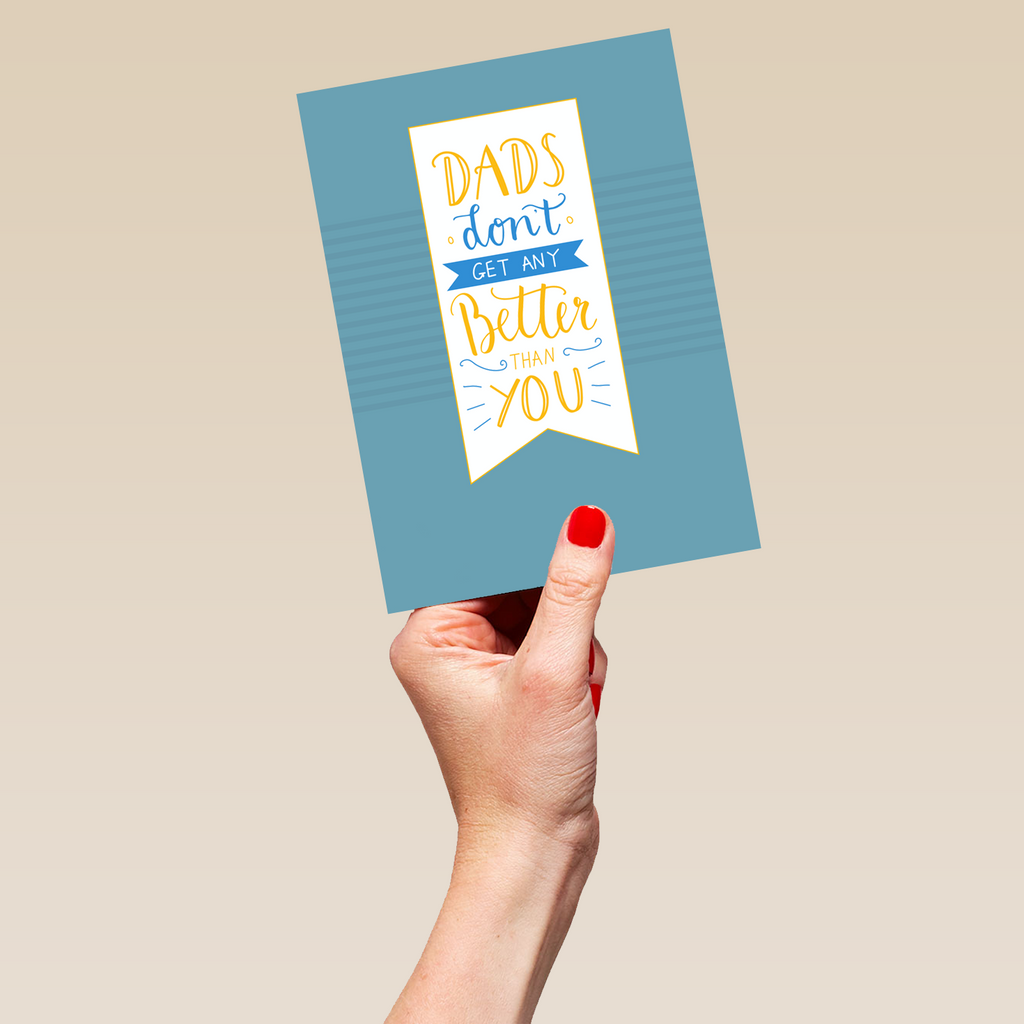 DADS
don't
GET ANY
Better
THAN
YOU